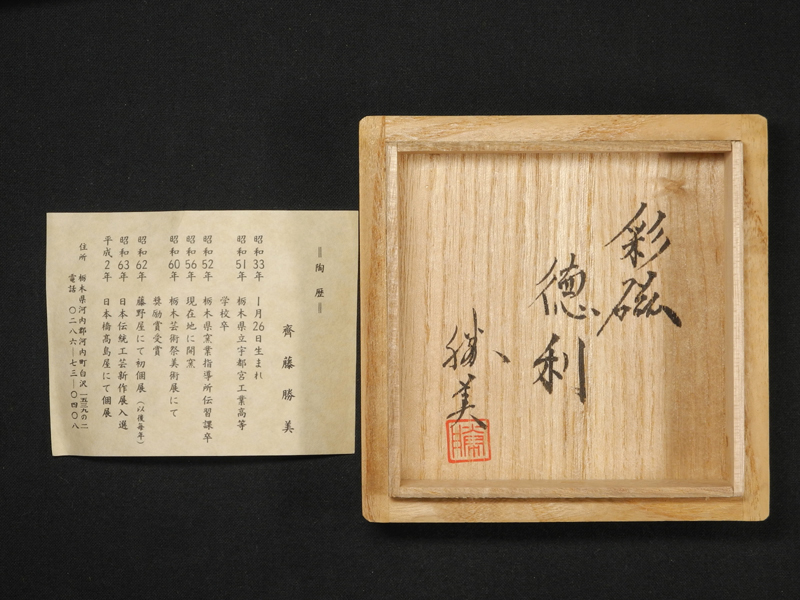 彩磁
徳利
勝美
陶歴
齊藤勝美
昭和33年 1月26日生まれ
昭和51年 栃木県立宇都宮工業高等
学校卒
昭和52年 栃木県窯業指導所伝習課卒
昭和56年 現在地に開窯
昭和60年 栃木芸術祭美術展にて
奨励賞受賞
昭和62年 藤野屋にて初個展(以後毎年)
昭和63年 日本伝統工芸新作展入選
平成2年 日本橋高島屋にて個展
住所 栃木県河内郡河内町白沢一五三九の二
電話 〇二八六―七三―〇四〇八